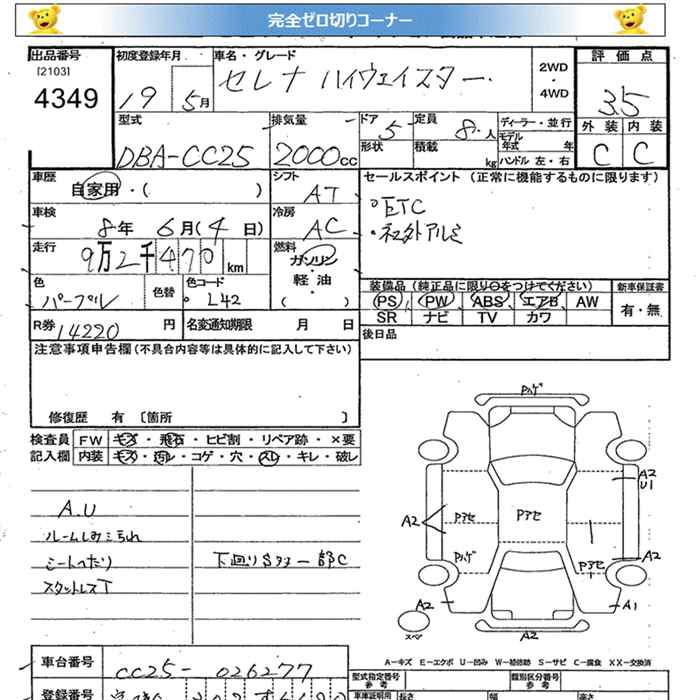 完全ゼロ切りコーナー
出品番号 初度登録年月 車名・グレード 評価点
[2103]
4349 19 5月 セレナ ハイウェイスター 2WD・4WD 3.5
型式 排気量 ドア 5 定員 8人 ディーラー・並行 外装 内装
モデル年式 年
DBA-CC25 2000cc 形状 積載 kg ハンドル 左・右 C C
車歴 シフト セールスポイント (正常に機能するものに限ります)
自家用・( ) AT
・ETC
車検 冷房 ・社外アルミ
8年 6月(4日) AC
走行 燃料
9万2千470km ガソリン・軽油( )
装備品(純正品に限り○をつけてください) 新車保証書
色 色替 色コード PS PW ABS エアB AW 有・無
パープル L42 SR ナビ TV カワ
R券 14220円 名変通知期限 月 日 後日品
注意事項申告欄(不具合内容等は具体的に記入して下さい)
修復歴 有 〔箇所 〕
検査員 FW キズ・飛石・ヒビ割・リペア跡・×要
記入欄 内装 キズ・汚レ・コゲ・穴・スレ・キレ・破レ
A.U
ルームしみこられ
シートへたり 下廻りSタ一部C
スタットレスT
Pハゲ
A2
U1
A2
Pアセ
Pアセ
Pハゲ
Pアセ
A2
A2
A1
スペア
A2
A-キズ E-エクボ U-凹み W-補修跡 S-サビ C-腐食 XX-交換済
車台番号 CC25-026277
型式指定番号 類別区分番号
参考 参考
登録番号
車庫証明用 長さ 幅 高さ